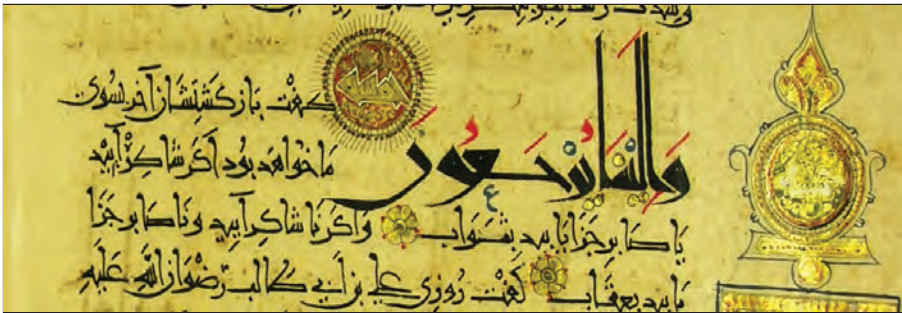 وَإِلَيْنَا تُرْجَعُونَ
كفت بازكشتشان آخر بسوى
ما خواهد بود اكر شاكر آييد
يا صابر جزا يابيد بثواب واكر نا شاكر آييد و نا صابر جزا
يابيد بعقاب كفت روزى على بن ابى طالب رضوان الله عليه